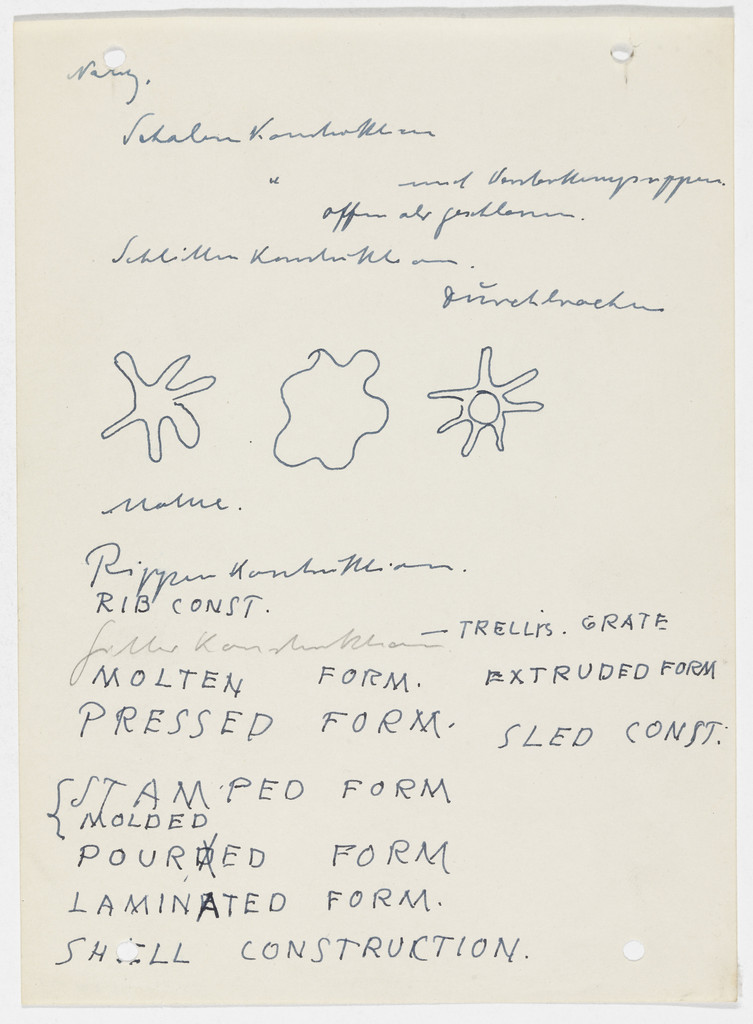 Schalen Konstruktion
" und Verstärkungsrippen.
offen oder geschlossen.
Schlitten Konstruktion.
Durchbrochen
Rippen Konstruktion.
RIB CONST.
Gitter Konstruktion — TRELLIS. GRATE
MOLTEN FORM. EXTRUDED FORM
PRESSED FORM. SLED CONST.
STAMPED FORM
MOLDED
POURED FORM
LAMINATED FORM.
SHELL CONSTRUCTION.